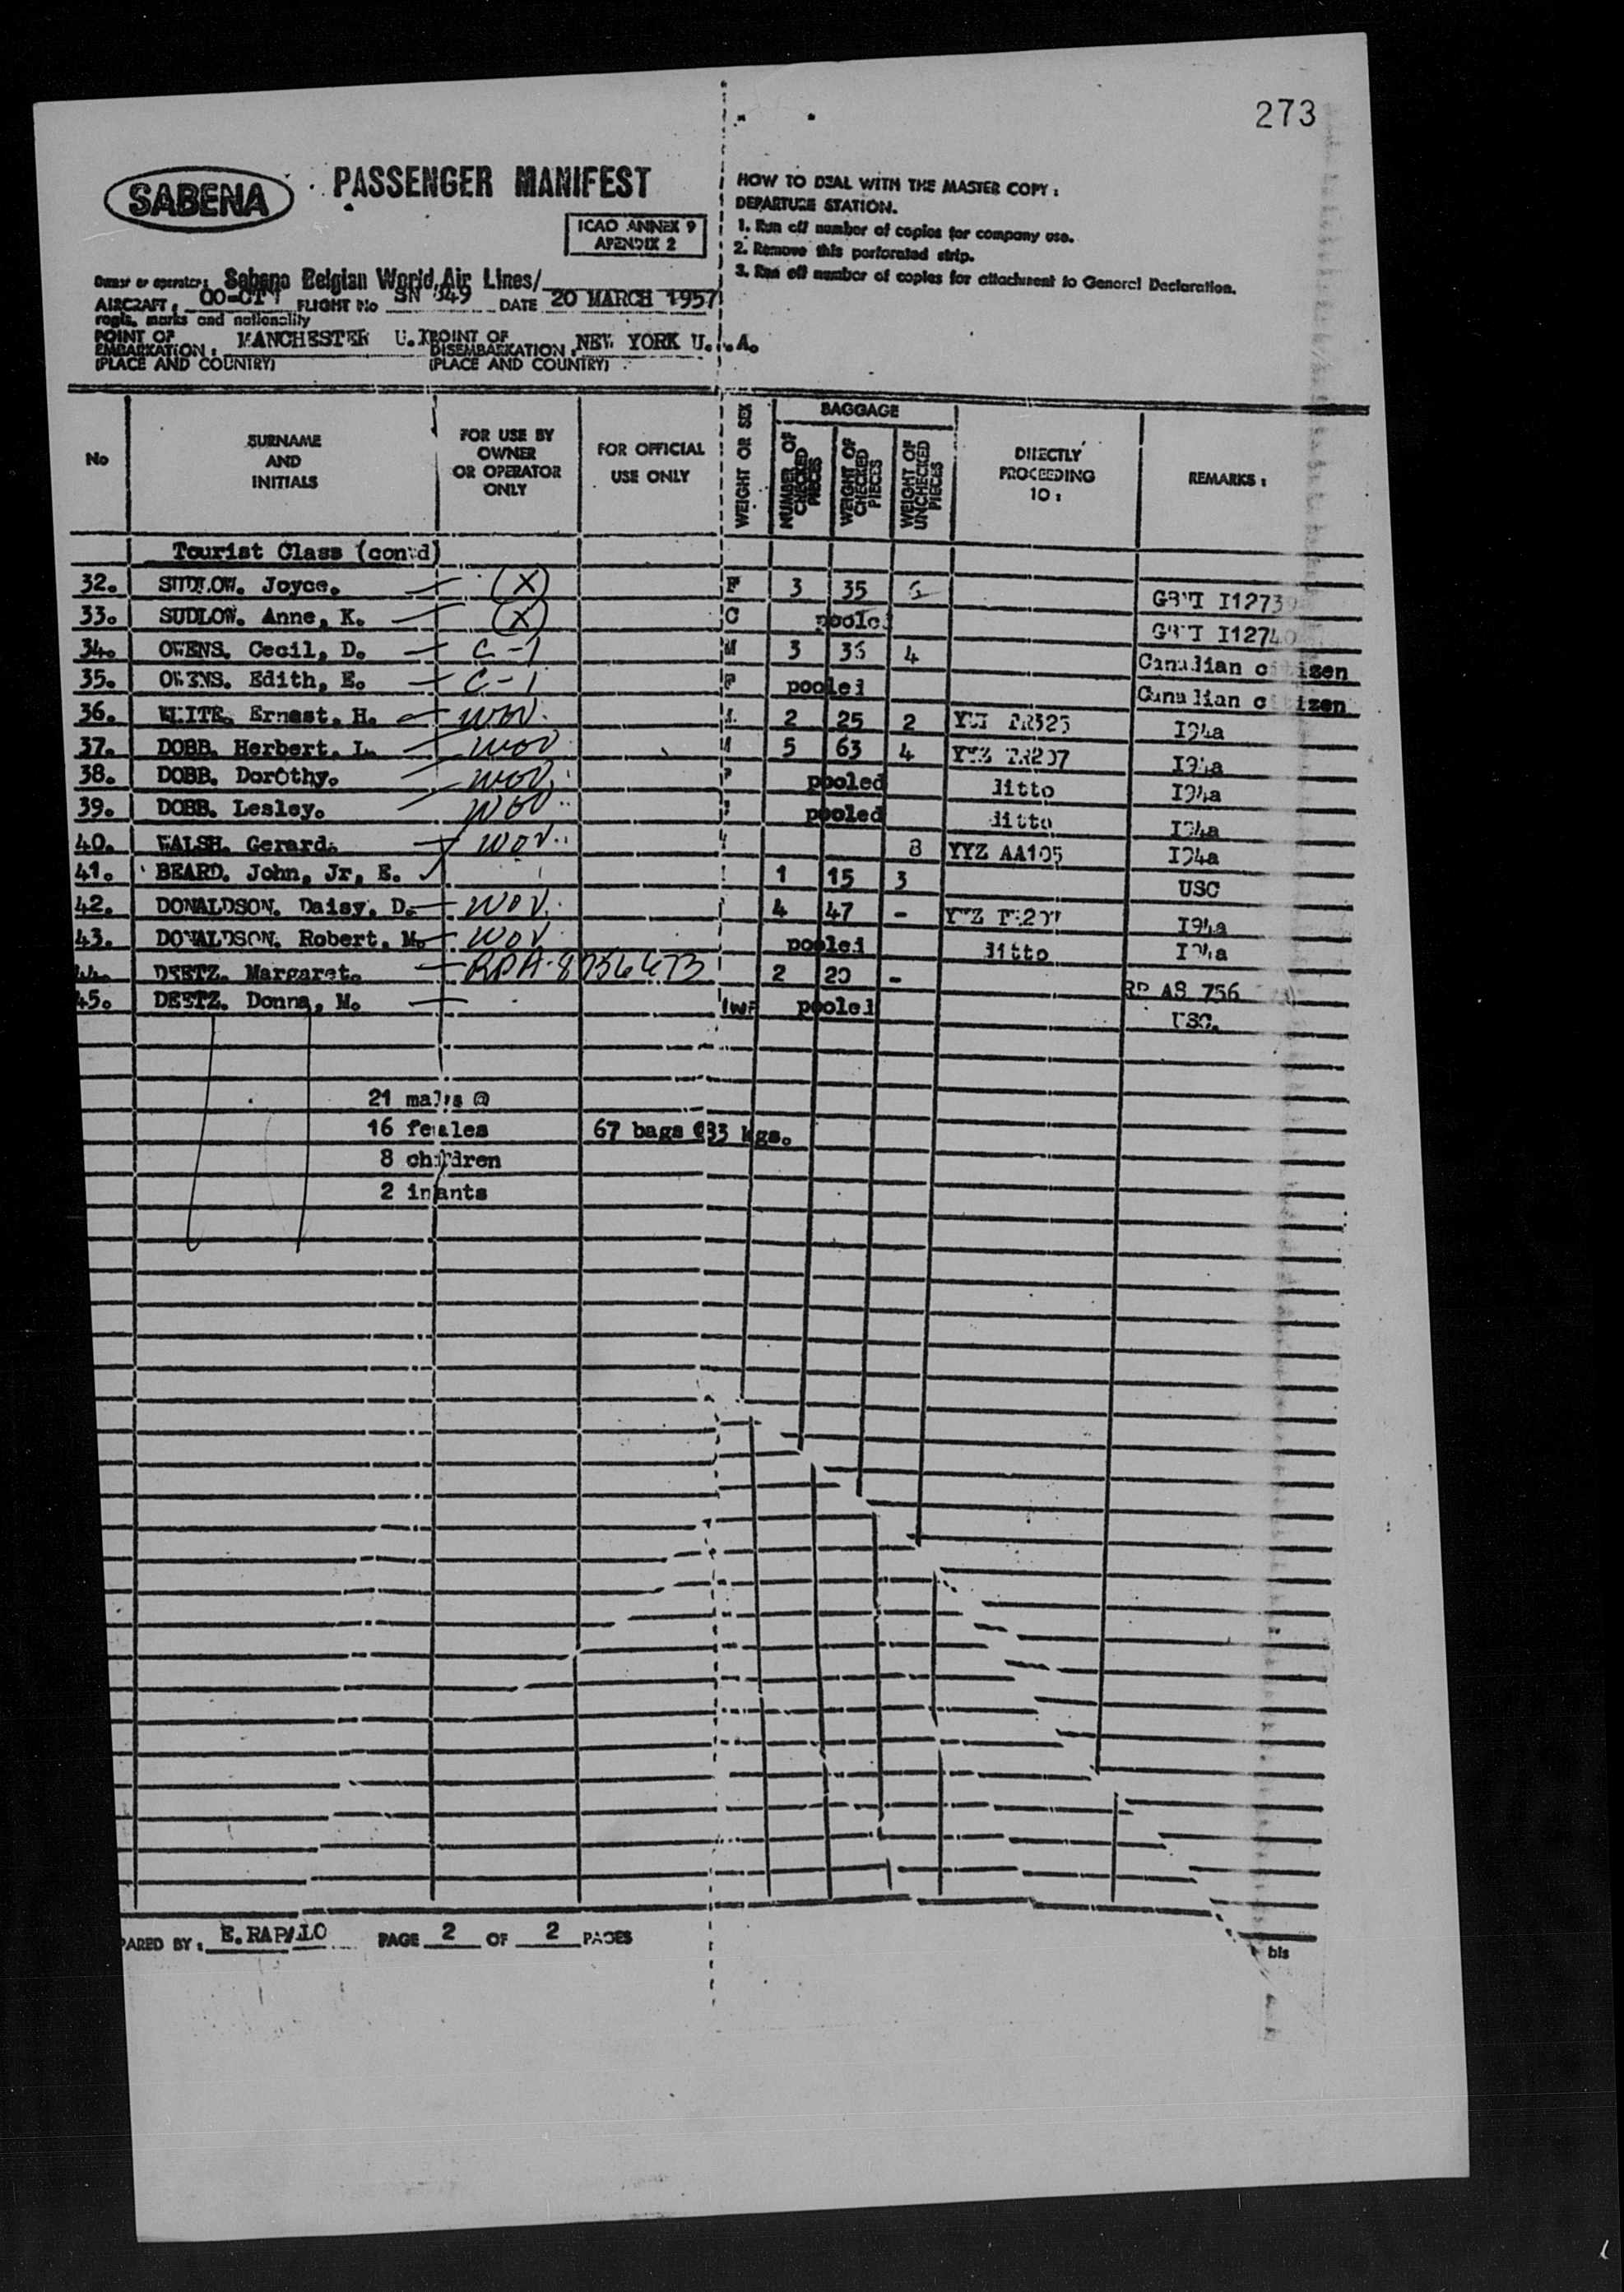 273
SABENA PASSENGER MANIFEST
ICAO ANNEX 9
APENDIX 2
HOW TO DEAL WITH THE MASTER COPY :
DEPARTURE STATION.
1. Run off number of copies for company use.
2. Remove this perforated strip.
3. Run off number of copies for attachment to General Declaration.
Owner or operator: Sabena Belgian World Air Lines/
AIRCRAFT : FLIGHT No SN 549 DATE 20 MARCH 1957
regis. marks and nationality
POINT OF EMBARKATION : MANCHESTER U.K POINT OF DISEMBARKATION : NEW YORK U. .A.
(PLACE AND COUNTRY) (PLACE AND COUNTRY)
No SURNAME AND INITIALS FOR USE BY OWNER OR OPERATOR ONLY FOR OFFICIAL USE ONLY WEIGHT OR SEX BAGGAGE NUMBER OF CHECKED PIECES WEIGHT OF CHECKED PIECES WEIGHT OF UNCHECKED PIECES DIRECTLY PROCEEDING TO : REMARKS :
Tourist Class (con'd)
32. SUDLOW. Joyce. (X) F 3 35 GBRI I12739
33. SUDLOW. Anne, K. (X) C pooled I12740
34. OWENS. Cecil, D. C-1 M 3 36 4 Canadian citizen
35. OWENS. Edith, E. C-1 F pooled Canadian citizen
36. WHITE. Ernest. H. WOV. 2 25 2 I94a
37. DOBB. Herbert. L. WOV 5 63 4 YYZ TR207 I94a
38. DOBB. Dorothy. WOV. F pooled ditto I94a
39. DOBB. Lesley. WOV. pooled ditto I94a
40. WALSH. Gerard. WOV. 8 YYZ AA105 I94a
41. BEARD. John, Jr, E. 1 15 3 USC
42. DONALDSON. Daisy. D. WOV. 4 47 - YYZ I94a
43. DONALDSON. Robert, M. WOV. pooled ditto I94a
44. DEETZ. Margaret. 2 20 - RP A8 756
45. DEETZ. Donna, M. pooled USC.
21 males @
16 females 67 bags @33 kgs.
8 children
2 infants
PARED BY : E. RAPALLO PAGE 2 OF 2 PAGES
bis